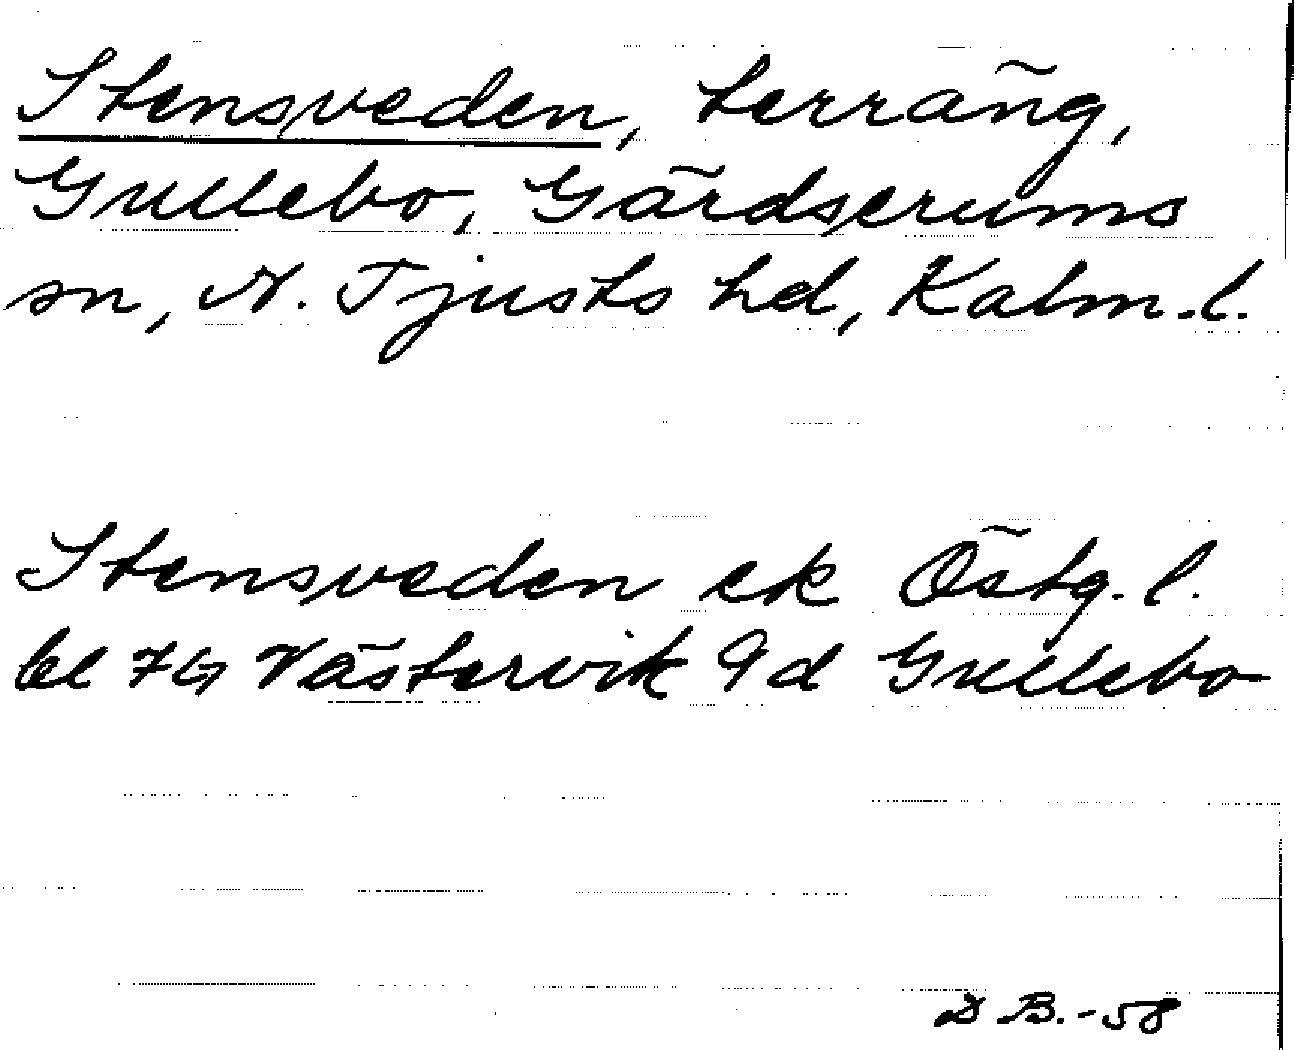 Stensveden, terräng,
Gullebo, Gärdserums
sn, N. Tjusts hd, Kalm.l.
Stensveden ek Östg.l.
bl 7G Västervik 9d Gullebo
D B.-58